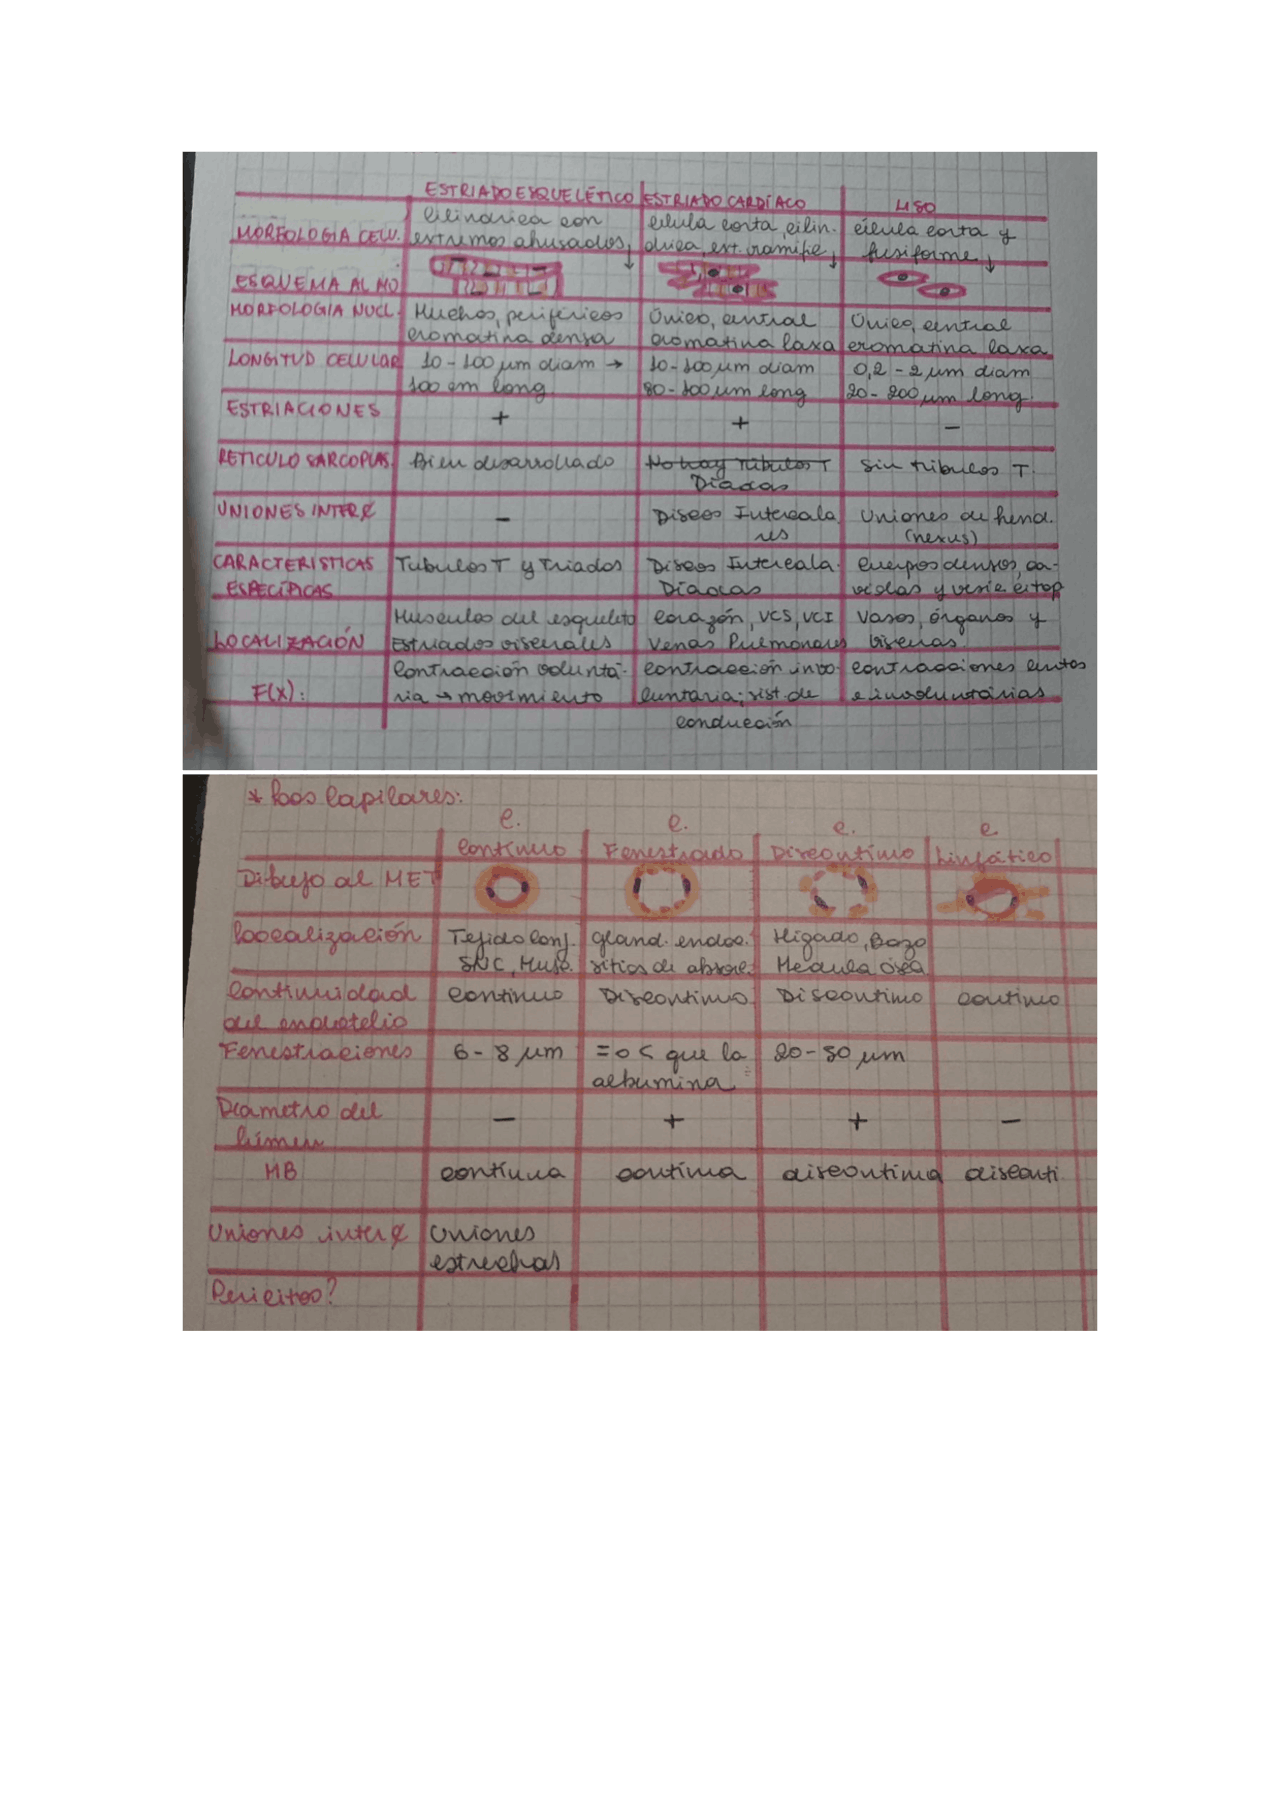 ESTRIADO ESQUELÉTICO ESTRIADO CARDÍACO LISO
MORFOLOGIA CELU. Cilindrica con extremos ahusados célula corta, cilindrica, ext. ramific célula corta y fusiforme
ESQUEMA AL MO
MORFOLOGIA NUCL. Muchos, periféricos cromatina densa Único, central cromatina laxa Único, central cromatina laxa
LONGITUD CELULAR 10-100 μm diam → 100 cm long 10-100 μm diam 80-100 μm long 0,2-2 μm diam 20-200 μm long.
ESTRIACIONES + + -
RETICULO SARCOPLAS. Bien desarrollado No hay Túbulos T Díadas Sin túbulos T.
UNIONES INTER₵ - Discos Intercalares Uniones de hend. (nexus)
CARACTERISTICAS ESPECÍFICAS Tubulos T y Triadas Discos Intercala. Díadas Cuerpos densos, caveolas y vesic. citop
LOCALIZACIÓN Musculos del esqueleto Estriados viscerales Corazón, VCS, VCI Venas Pulmonares Vasos, órganos y vísceras.
F(x): Contracción voluntaria → movimiento contracción involuntaria; sist. de conducción contracciones lentas e involuntarias
* Los Capilares:
C. Contínuo C. Fenestrado C. Discontínuo C. Linfático
Dibujo al MET
Localización Tejido Conj. SNC, Musc. gland. endoc. sitios de absorc. Hígado, Bazo Medula ósea
Continuidad del endotelio continuo Discontinuo Discontinuo continuo
Fenestraciones 6-8 μm = o < que la albumina 20-30 μm
Diametro del lúmen - + + -
MB contínua contínua discontinua disconti.
Uniones inter₵ Uniones estrechas
Pericitos?